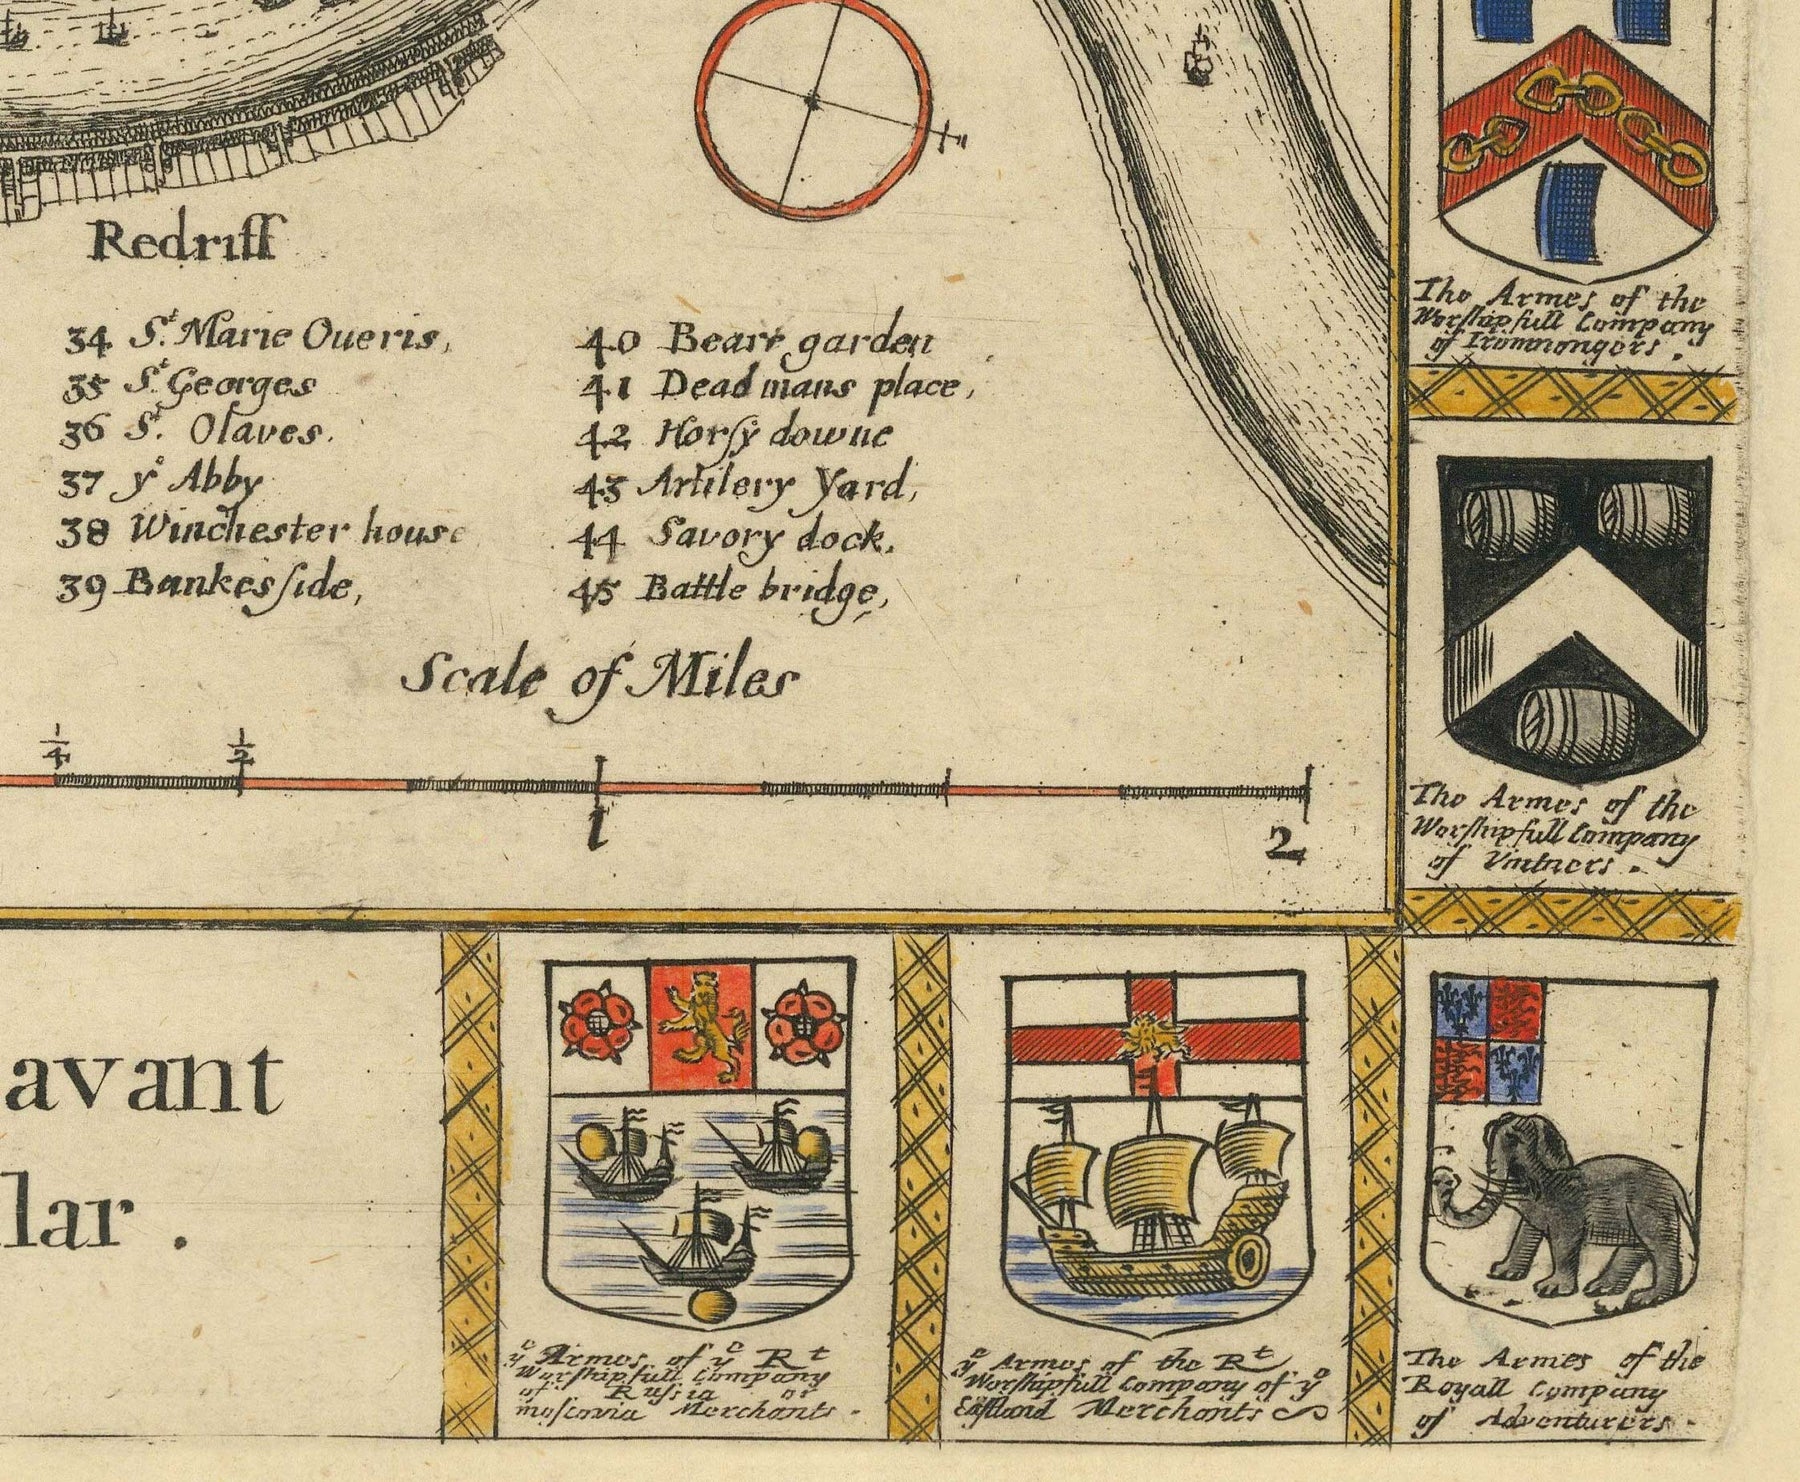 Redriff
34 St. Marie Oueris,
35 St. Georges
36 St. Olaves.
37 ye Abby
38 Winchester house
39 Bankesſide,
40 Beare garden
41 Dead mans place,
42 Horſy downe
43 Artilery Yard,
44 Savory dock,
45 Battle bridge,
Scale of Miles
1/4 1/2
1 2
avant
lar .
The Armes of the
Worſhipfull Company
of Ironmongers .
The Armes of the
Worſhipfull Company
of Vintners .
ye Armes of ye Rt
Worſhipfull Company
of Ruſsia or
moſcovia Merchants .
ye Armes of the Rt
Worſhipfull Company of ye
Eaſtland Merchants
The Armes of the
Royall Company
of Adventurers .